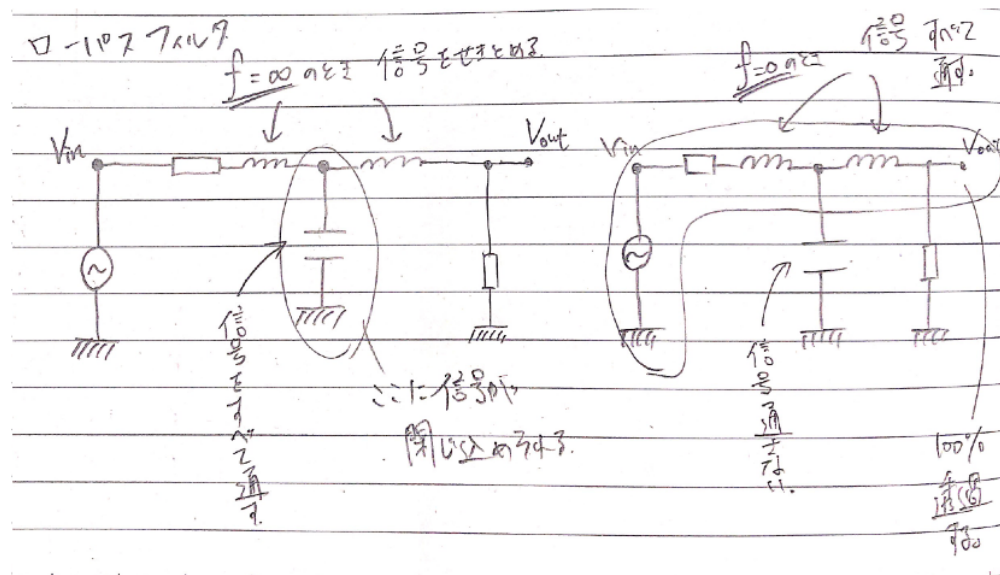 ローパスフィルタ
f=∞のとき 信号をせきとめる
Vin
Vout
信号をすべて通す.
ここに信号が
閉じ込められる.
f=0のとき
信号すべて
通す。
Vin
Vout
信号通さない.
100%
通過
する。